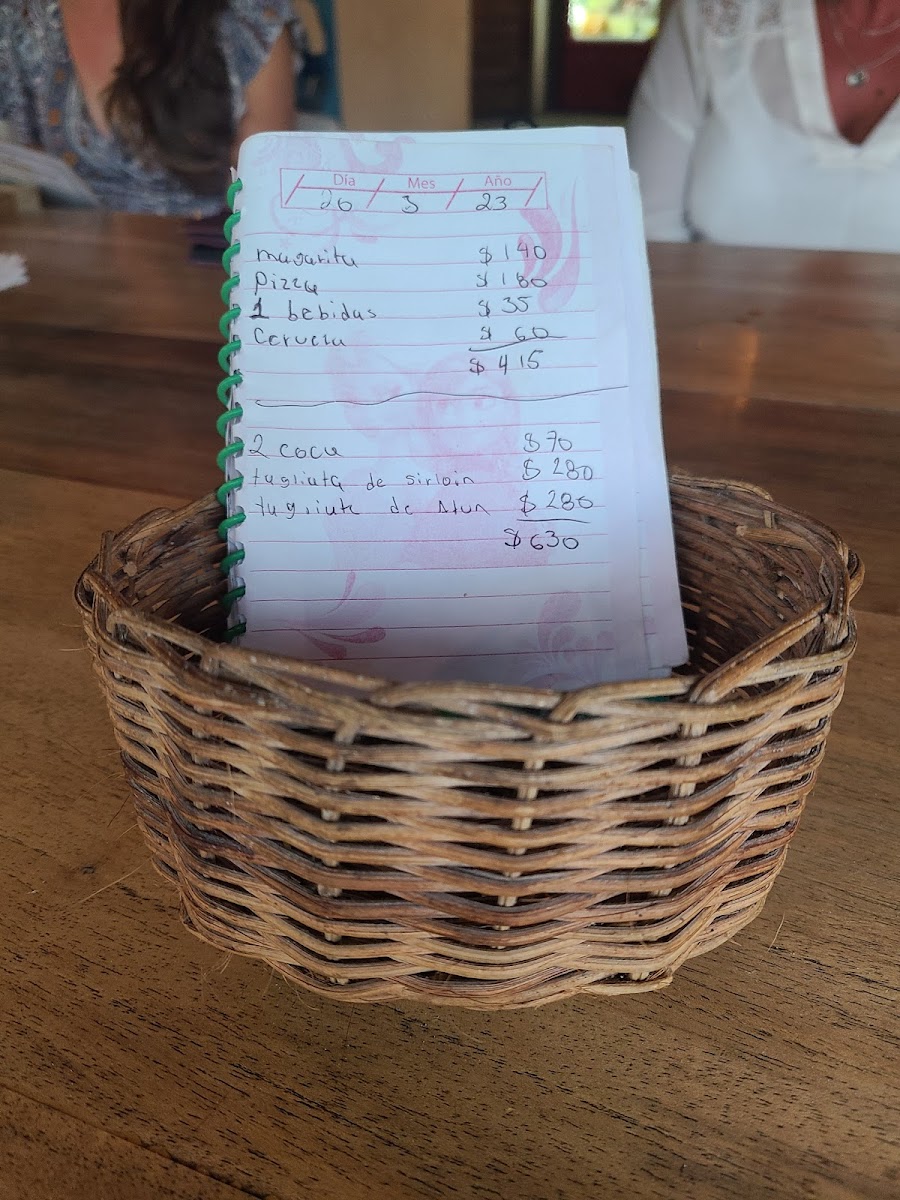 Día / Mes / Año
26 3 23
magarita $140
Pizza $180
1 bebidas $35
Cerveza $60
$415
2 coca $70
tagliata de sirloin $280
tagliata de Atun $280
$630